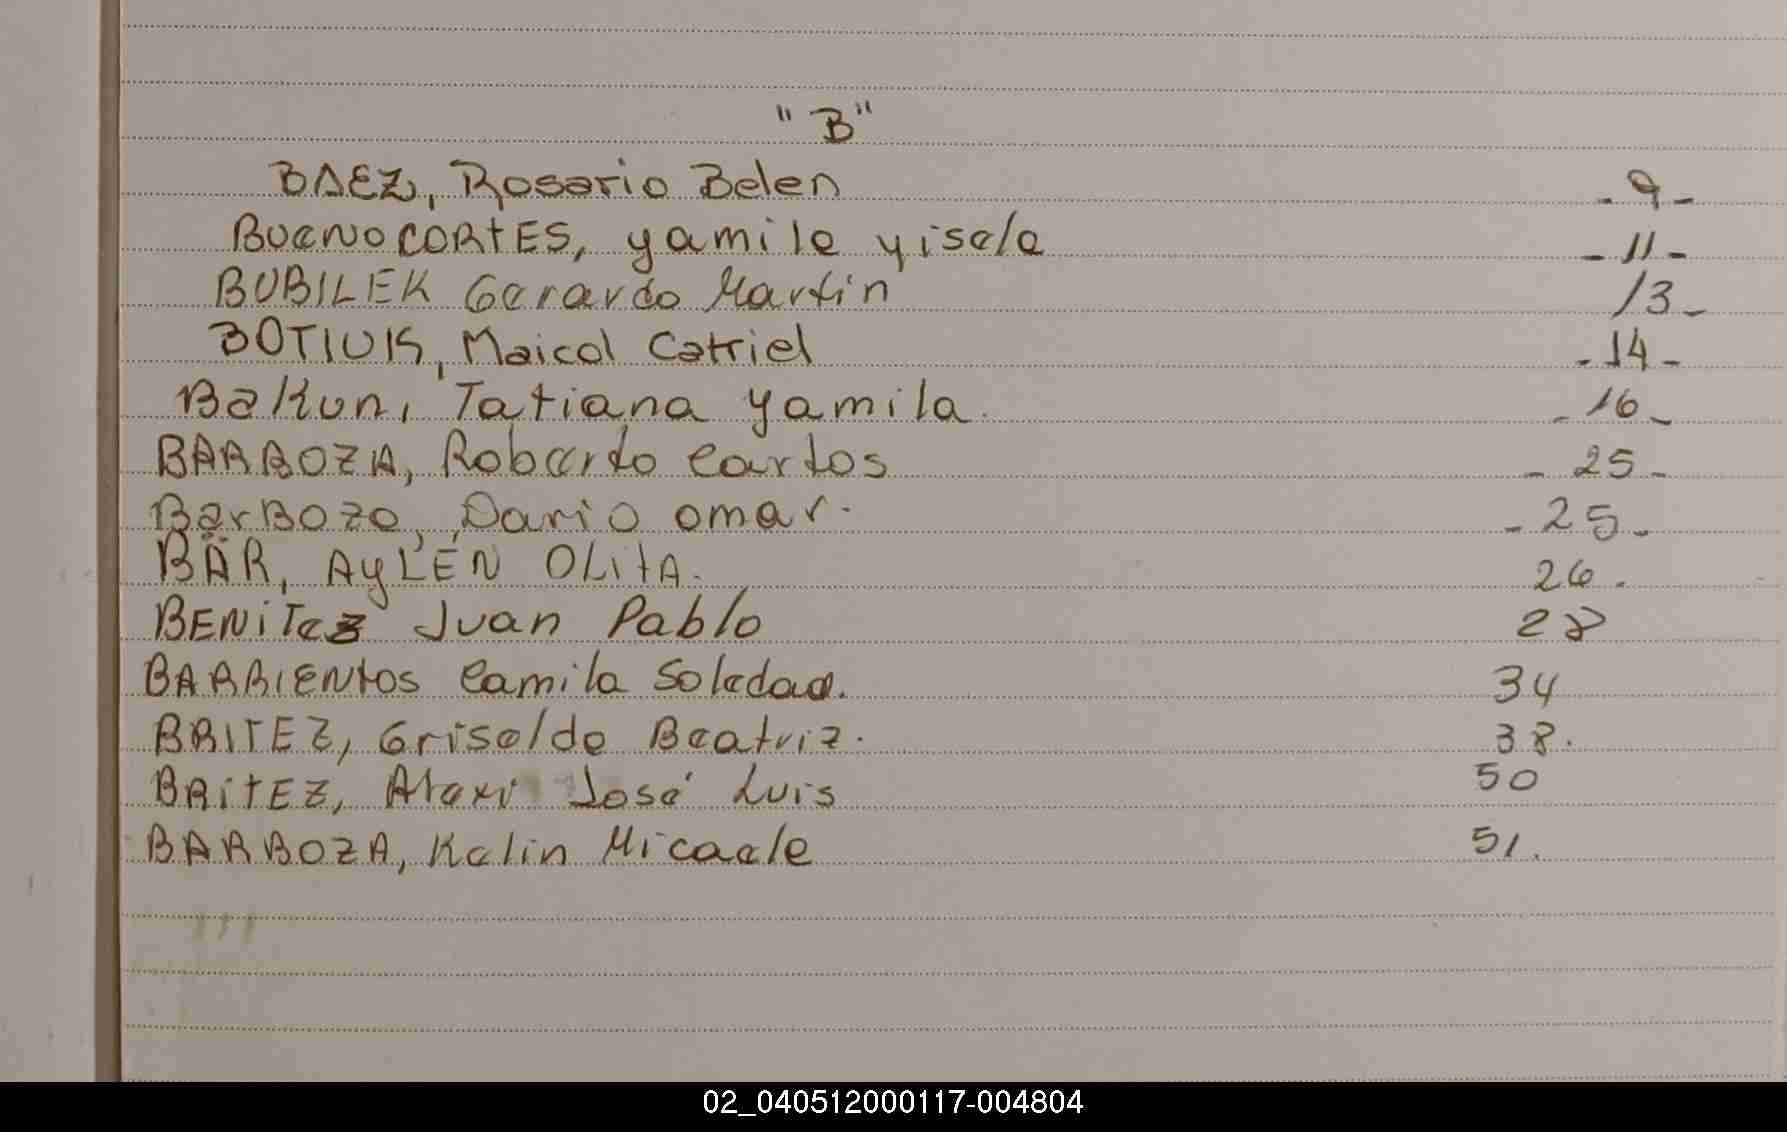 "B"
BAEZ, Rosario Belen -9-
BUENO CORTES, yamile yisela -11-
BUBILEK Gerardo Martin 13-
BOTIUK, Maicol Catriel -14-
Bakun, Tatiana yamila. -16-
BARBOZA, Roberto Carlos -25-
BarBoza, Dario omar. -25-
BÄR, AyLÉN OLitA. 26.
BENiTez Juan Pablo 28
BARRIENtos Camila Soledad. 34
BRITEZ, Griselda Beatriz. 38.
BRitEZ, José Luis 50
BARBOZA, Kelin Micaela 51.
02_040512000117-004804